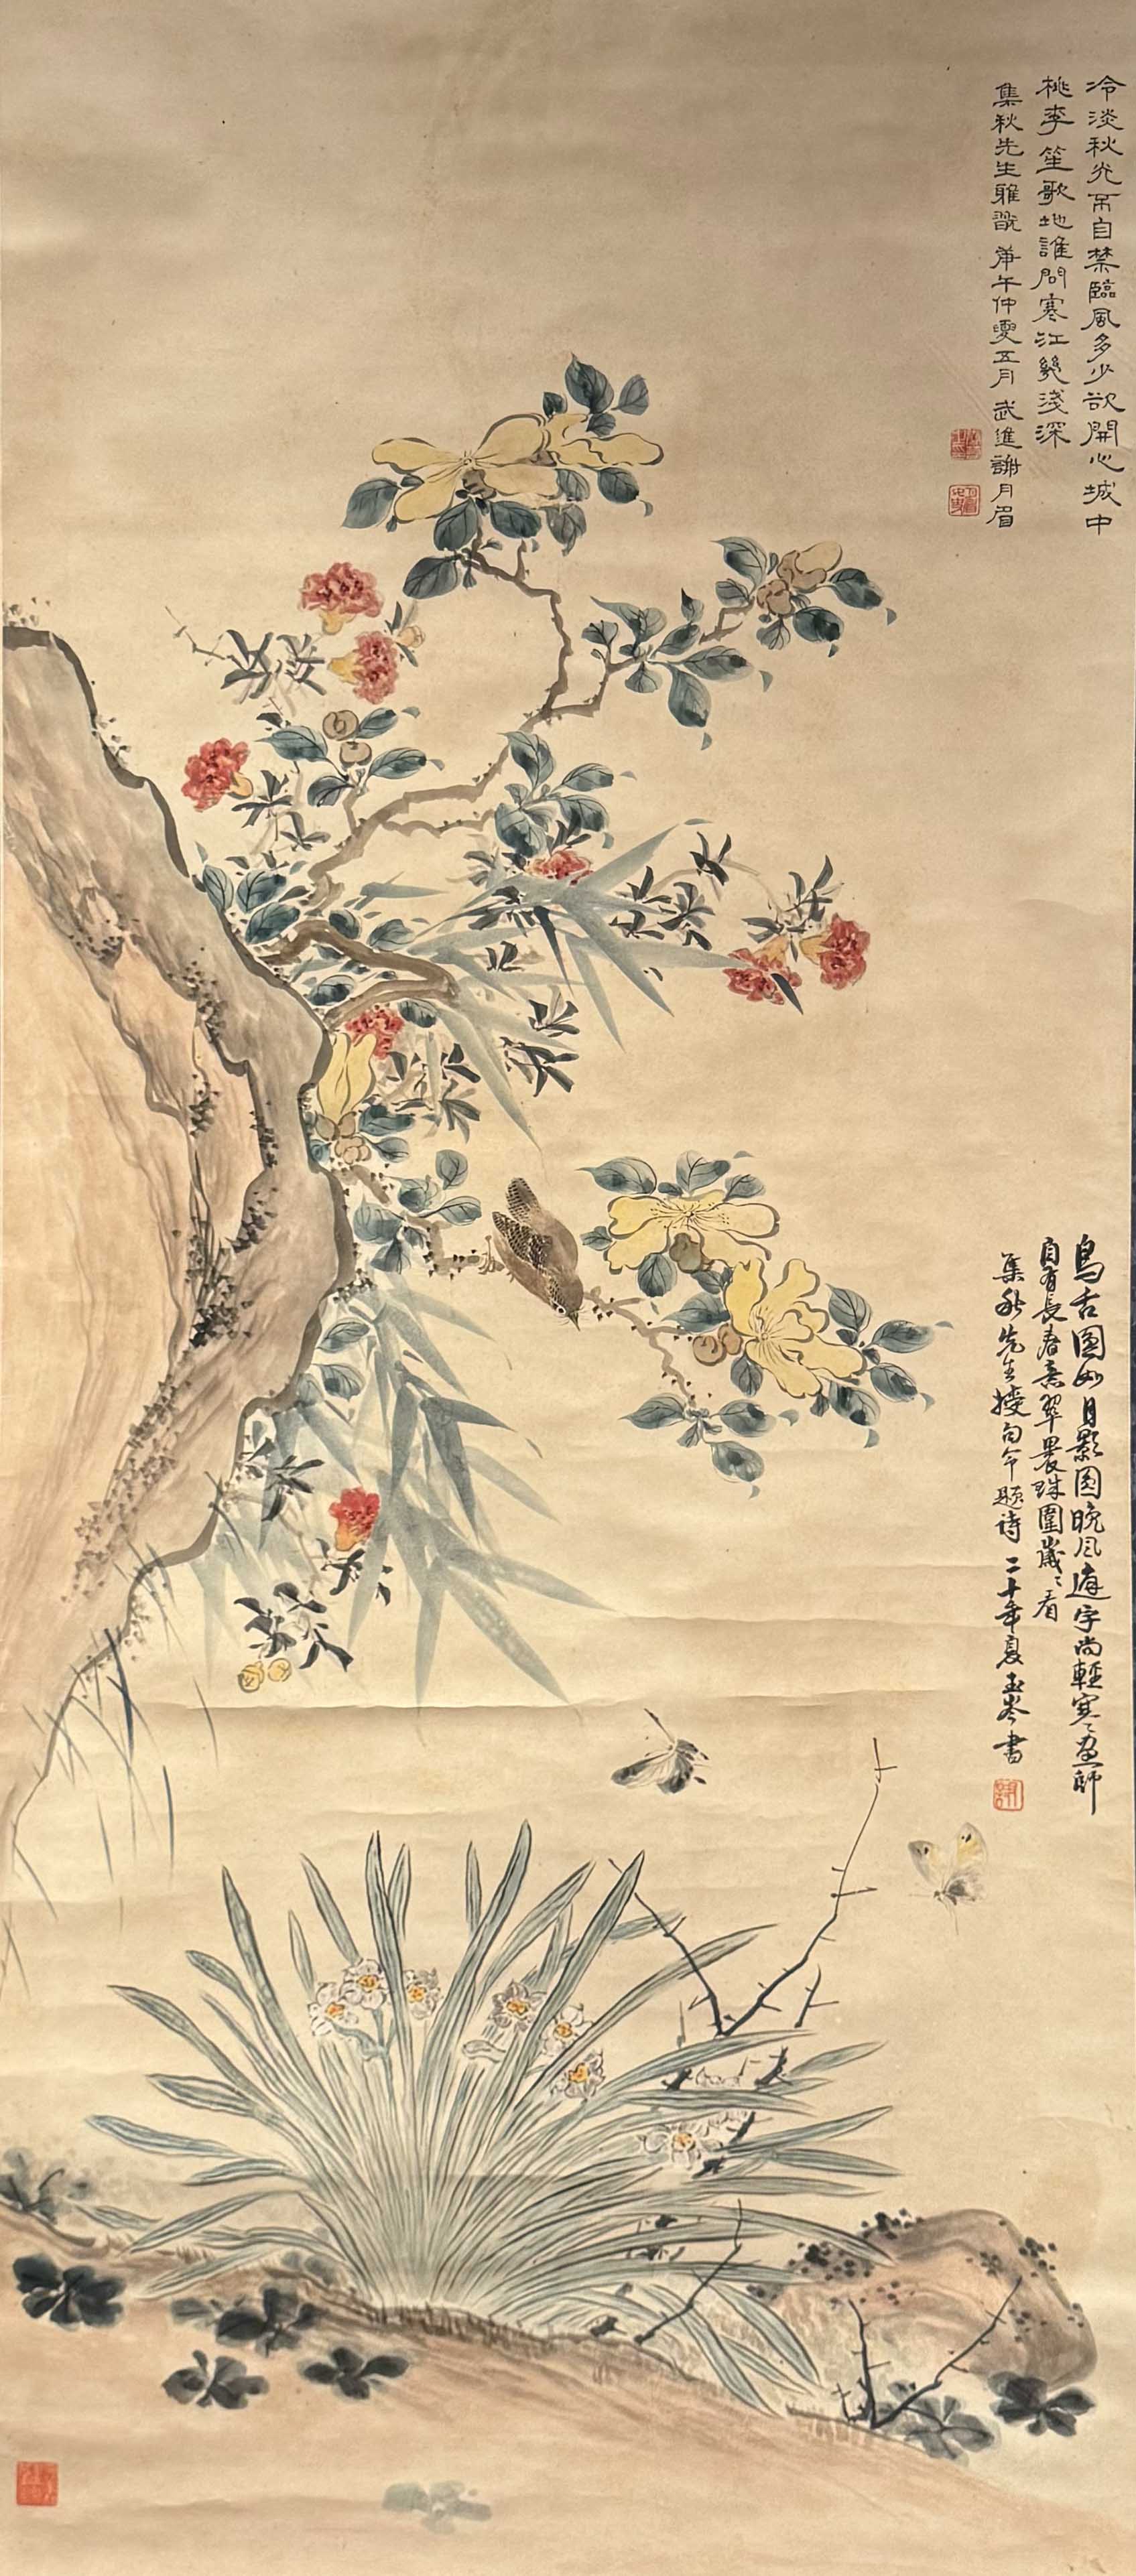 冷淡秋光不自禁臨風多少欲開心城中
桃李笙歌地誰問寒江幾淺深
集秋先生雅翫 庚午仲夏五月 武進謝月眉
鳥舌圓如月影團晚風連字尚輕寒畫師
自有長春意翠裹珠圍歲歲看
集秋先生
命題詩 二十年夏 玉岑書